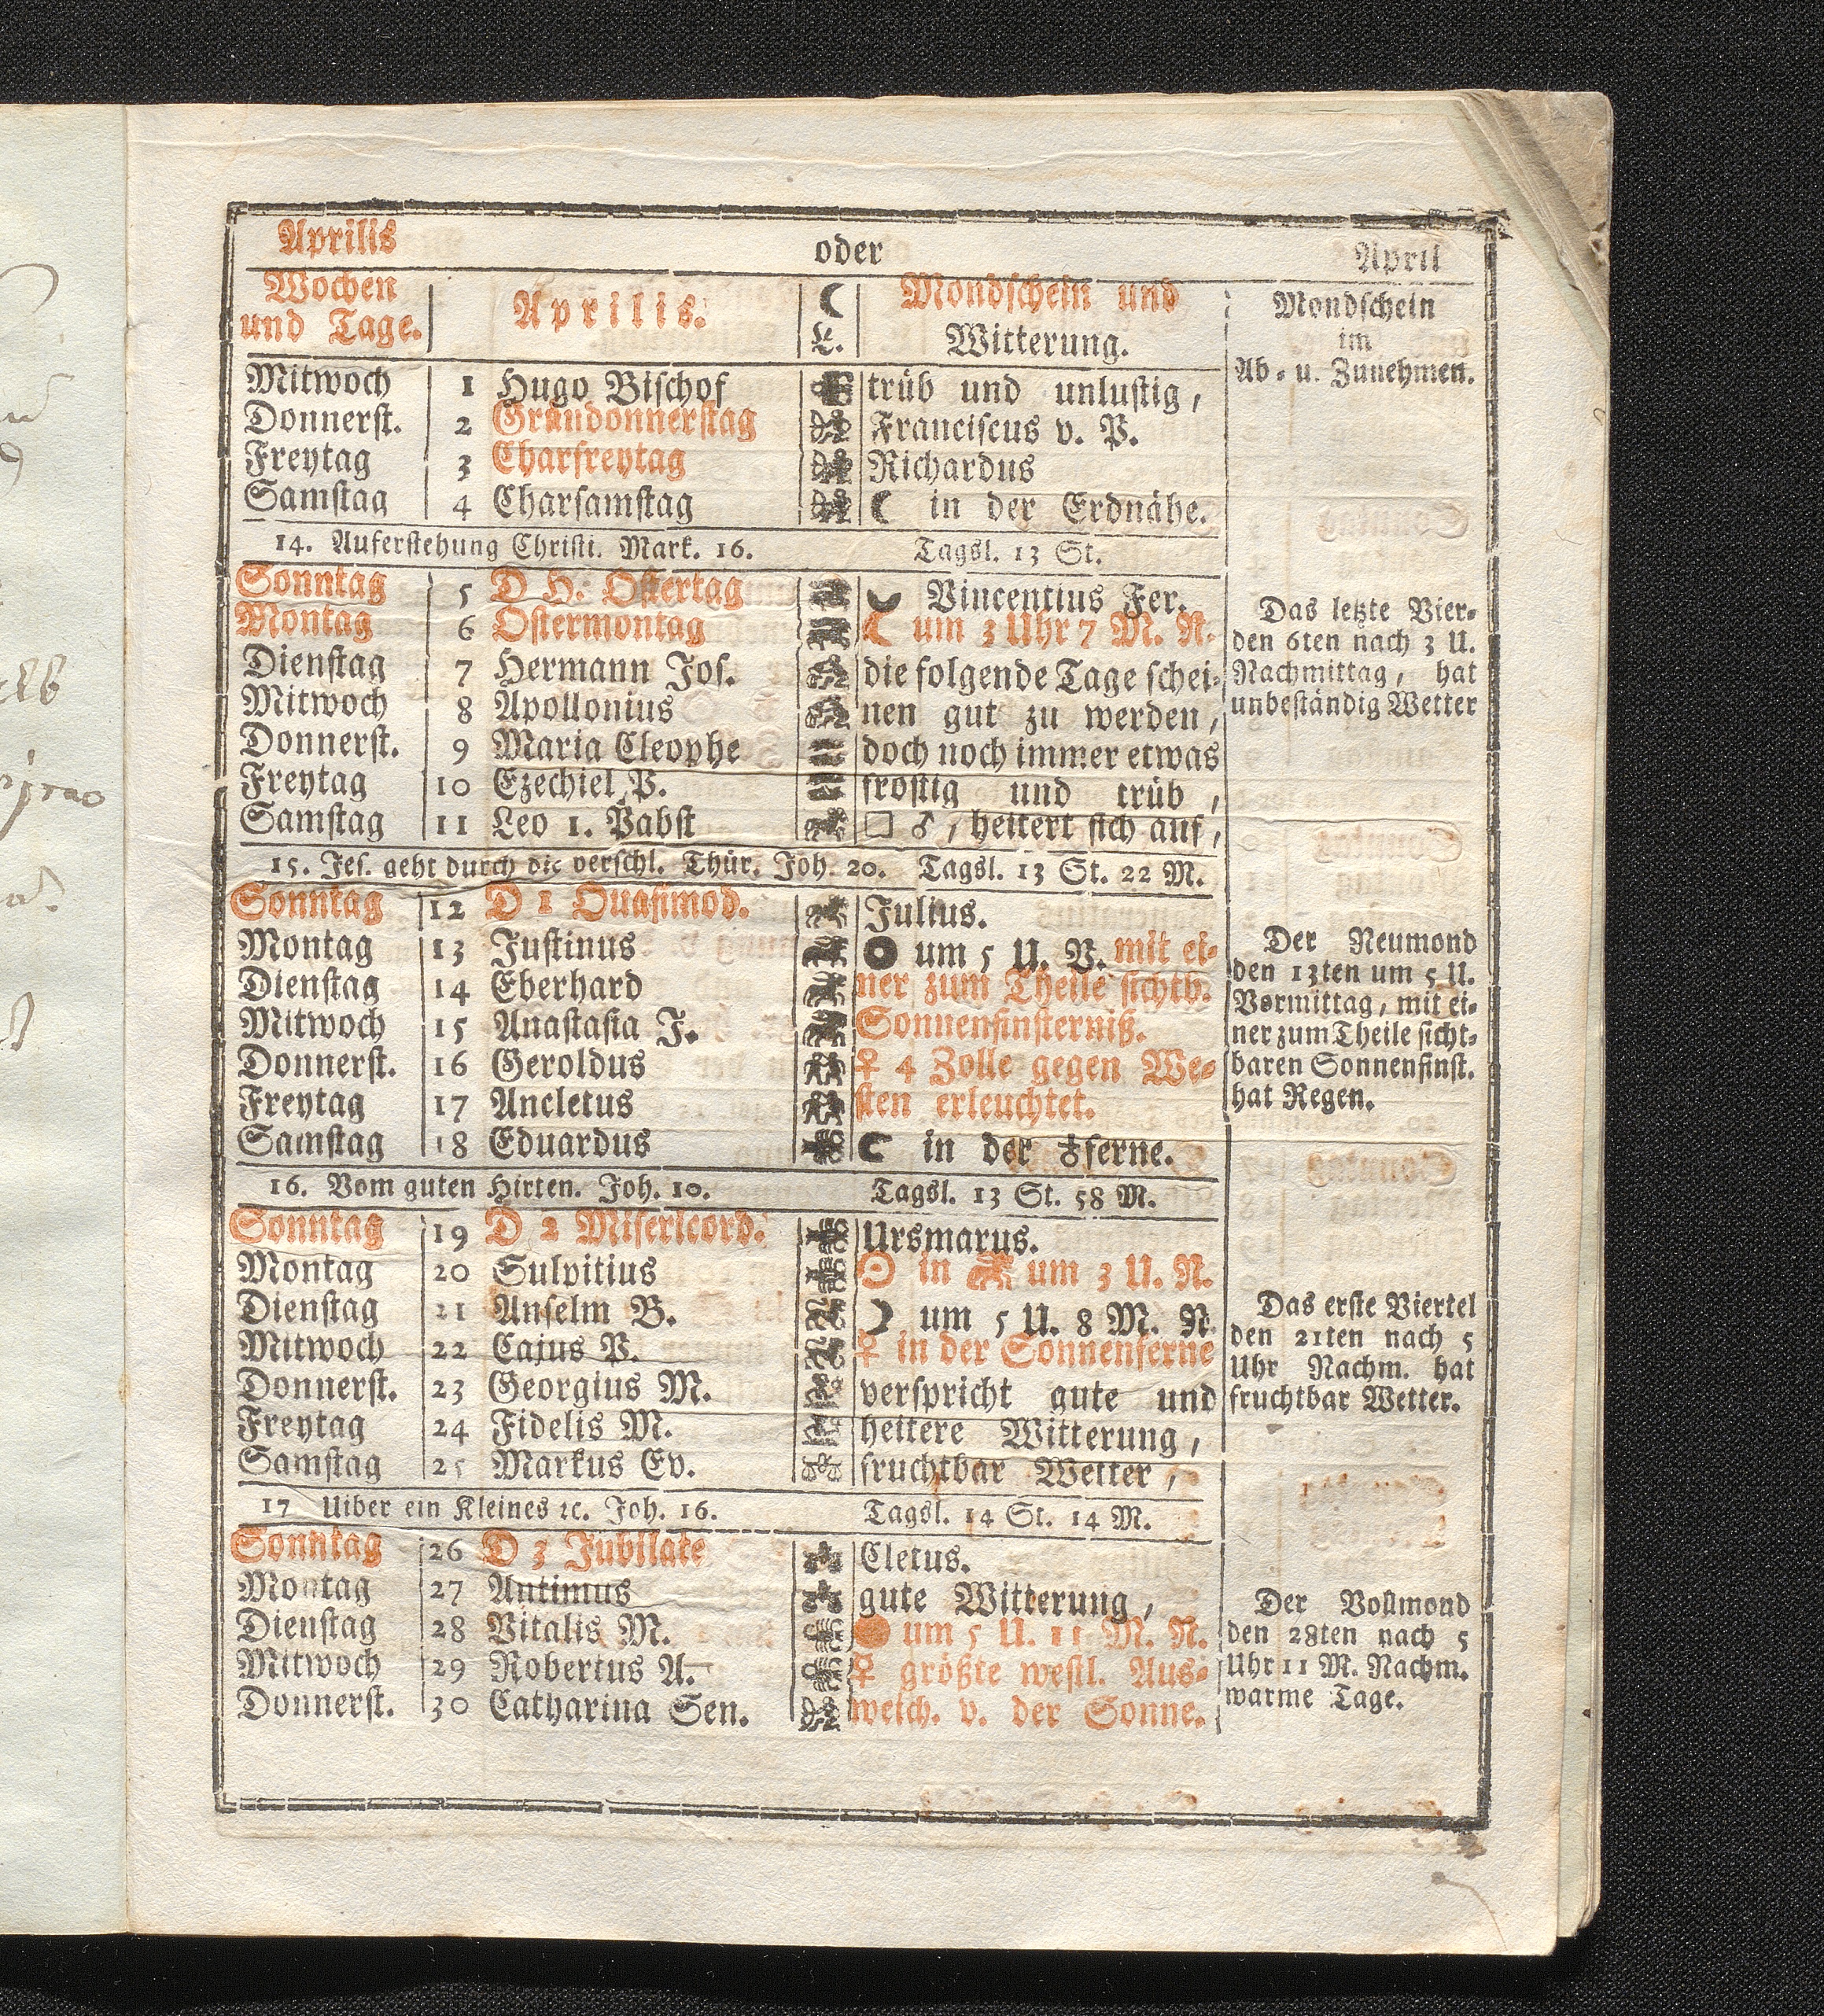 Aprilis oder April
Wochen und Tage. Aprilis. ☾ L. Mondschein und Witterung. Mondschein im Ab- u. Zunehmen.
Mitwoch 1 Hugo Bischof trüb und unlustig,
Donnerst. 2 Gründonnerstag Franciscus v. P.
Freytag 3 Charfreytag Richardus
Samstag 4 Charsamstag ☾ in der Erdnähe.
14. Auferstehung Christi. Mark. 16. Tagsl. 13 St.
Sonntag 5 D H. Ostertag Vincentius Fer.
Montag 6 Ostermontag ☾ um 3 Uhr 7 M. N.
Dienstag 7 Hermann Jos. die folgende Tage schei-
Mitwoch 8 Apollonius nen gut zu werden,
Donnerst. 9 Maria Cleophe doch noch immer etwas
Freytag 10 Ezechiel P. frostig und trüb,
Samstag 11 Leo 1. Pabst □ ♂, heitert sich auf,
Das letzte Vier-
den 6ten nach 3 U.
Nachmittag, hat
unbeständig Wetter
15. Jes. geht durch die verschl. Thür. Joh. 20. Tagsl. 13 St. 22 M.
Sonntag 12 D 1 Quasimod. Julius.
Montag 13 Justinus um 5 U. V. mit ei-
Dienstag 14 Eberhard ner zum Theile sichtb.
Mitwoch 15 Anastasia J. Sonnenfinsterniß.
Donnerst. 16 Geroldus ♀ 4 Zolle gegen We-
Freytag 17 Ancletus sten erleuchtet.
Samstag 18 Eduardus ☾ in der ♁ferne.
Der Neumond
den 13ten um 5 U.
Vormittag, mit ei-
ner zum Theile sicht-
baren Sonnenfinst.
hat Regen.
16. Vom guten Hirten. Joh. 10. Tagsl. 13 St. 58 M.
Sonntag 19 D 2 Misericord. Ursmarus.
Montag 20 Sulpitius ☉ in ♉ um 3 U. N.
Dienstag 21 Anselm B. ☽ um 5 U. 8 M. N.
Mitwoch 22 Cajus P. ♀ in der Sonnenferne
Donnerst. 23 Georgius M. verspricht gute und
Freytag 24 Fidelis M. heitere Witterung,
Samstag 25 Markus Ev. fruchtbar Wetter,
Das erste Viertel
den 21ten nach 5
Uhr Nachm. hat
fruchtbar Wetter.
17 Uiber ein Kleines ꝛc. Joh. 16. Tagsl. 14 St. 14 M.
Sonntag 26 D 3 Jubilate Cletus.
Montag 27 Antimus gute Witterung,
Dienstag 28 Vitalis M. um 5 U. 11 M. N.
Mitwoch 29 Robertus A. ♀ größte westl. Aus-
Donnerst. 30 Catharina Sen. weich. v. der Sonne.
Der Vollmond
den 28ten nach 5
Uhr 11 M. Nachm.
warme Tage.